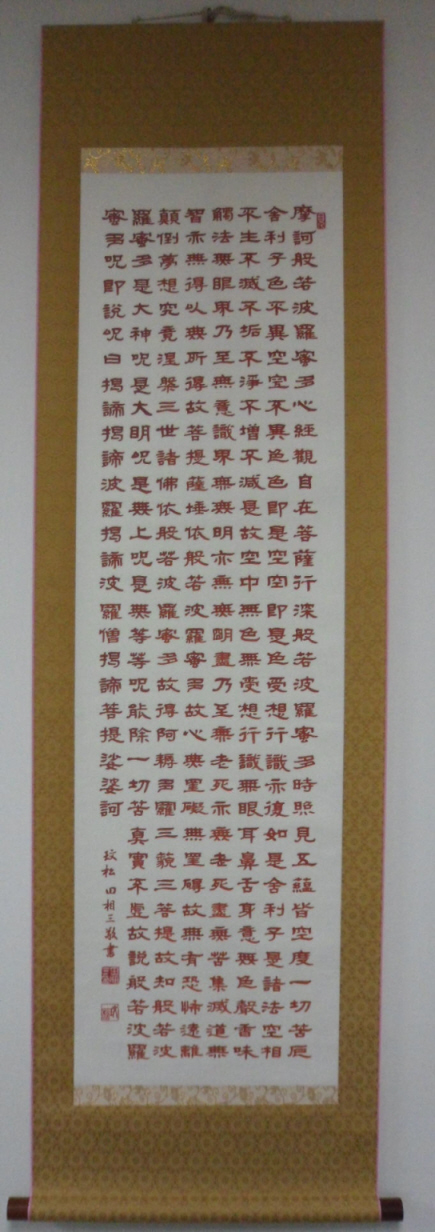 摩訶般若波羅蜜多心經觀自在菩薩行深般若波羅蜜多時照見五蘊皆空度一切苦厄
舍利子色不異空空不異色色即是空空即是色受想行識亦復如是舍利子是諸法空相
不生不滅不垢不淨不增不減是故空中無色無受想行識無眼耳鼻舌身意無色聲香味
觸法無眼界乃至無意識界無無明亦無無明盡乃至無老死亦無老死盡無苦集滅道無
智亦無得以無所得故菩提薩埵依般若波羅蜜多故心無罣礙無罣礙故無有恐怖遠離
顛倒夢想究竟涅槃三世諸佛依般若波羅蜜多故得阿耨多羅三藐三菩提故知般若波
羅蜜多是大神呪是大明呪是無上呪是無等等呪能除一切苦真實不虛故說般若波羅
蜜多呪即說呪曰揭諦揭諦波羅揭諦波羅僧揭諦菩提娑婆訶
玟松 田相三敬書